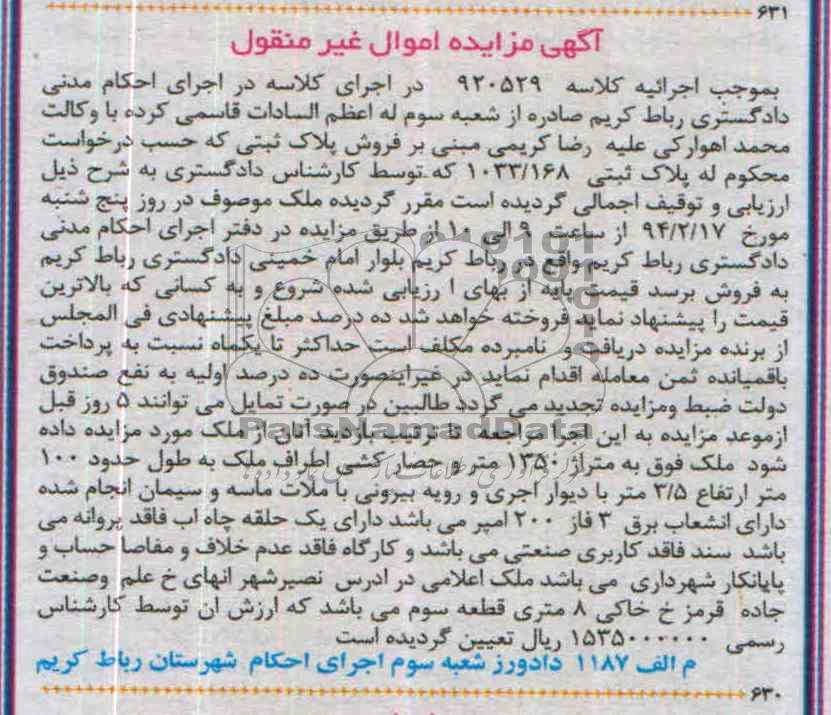 ۶۳۱
آگهی مزایده اموال غیر منقول
بموجب اجرائیه کلاسه ۹۲۰۵۲۹ در اجرای کلاسه در اجرای احکام مدنی
دادگستری رباط کریم صادره از شعبه سوم له اعظم السادات قاسمی کرده با وکالت
محمد اهوارکی علیه رضا کریمی مبنی بر فروش پلاک ثبتی که حسب درخواست
محکوم له پلاک ثبتی ۱۰۳۳/۱۶۸ که توسط کارشناس دادگستری به شرح ذیل
ارزیابی و توقیف اجمالی گردیده است مقرر گردیده ملک موصوف در روز پنج شنبه
مورخ ۹۴/۲/۱۷ از ساعت ۹ الی ۱۰ از طریق مزایده در دفتر اجرای احکام مدنی
دادگستری رباط کریم واقع در رباط کریم بلوار امام خمینی دادگستری رباط کریم
به فروش برسد قیمت پایه از بهای ا رزیابی شده شروع و به کسانی که بالاترین
قیمت را پیشنهاد نماید فروخته خواهد شد ده درصد مبلغ پیشنهادی فی المجلس
از برنده مزایده دریافت و نامبرده مکلف است حداکثر تا یکماه نسبت به پرداخت
باقمیانده ثمن معامله اقدام نماید در غیراینصورت ده درصد اولیه به نفع صندوق
دولت ضبط ومزایده تجدید می گردد طالبین در صورت تمایل می توانند ۵ روز قبل
ازموعد مزایده به این اجرا مراجعه تا ترتیب بازدید آنان از ملک مورد مزایده داده
شود ملک فوق به متراژ ۱۳۵۰ متر و حصار کشی اطراف ملک به طول حدود ۱۰۰
متر ارتفاع ۳/۵ متر با دیوار اجری و رویه بیرونی با ملات ماسه و سیمان انجام شده
دارای انشعاب برق ۳ فاز ۲۰۰ امپر می باشد دارای یک حلقه چاه اب فاقد پروانه می
باشد سند فاقد کاربری صنعتی می باشد و کارگاه فاقد عدم خلاف و مفاصا حساب و
پایانکار شهرداری می باشد ملک اعلامی در ادرس نصیرشهر انهای خ علم وصنعت
جاده قرمز خ خاکی ۸ متری قطعه سوم می باشد که ارزش ان توسط کارشناس
رسمی ۱۵۳۵۰۰۰۰۰۰ ریال تعیین گردیده است
م الف ۱۱۸۷ دادورز شعبه سوم اجرای احکام شهرستان رباط کریم
۶۳۰
ParsNamadData